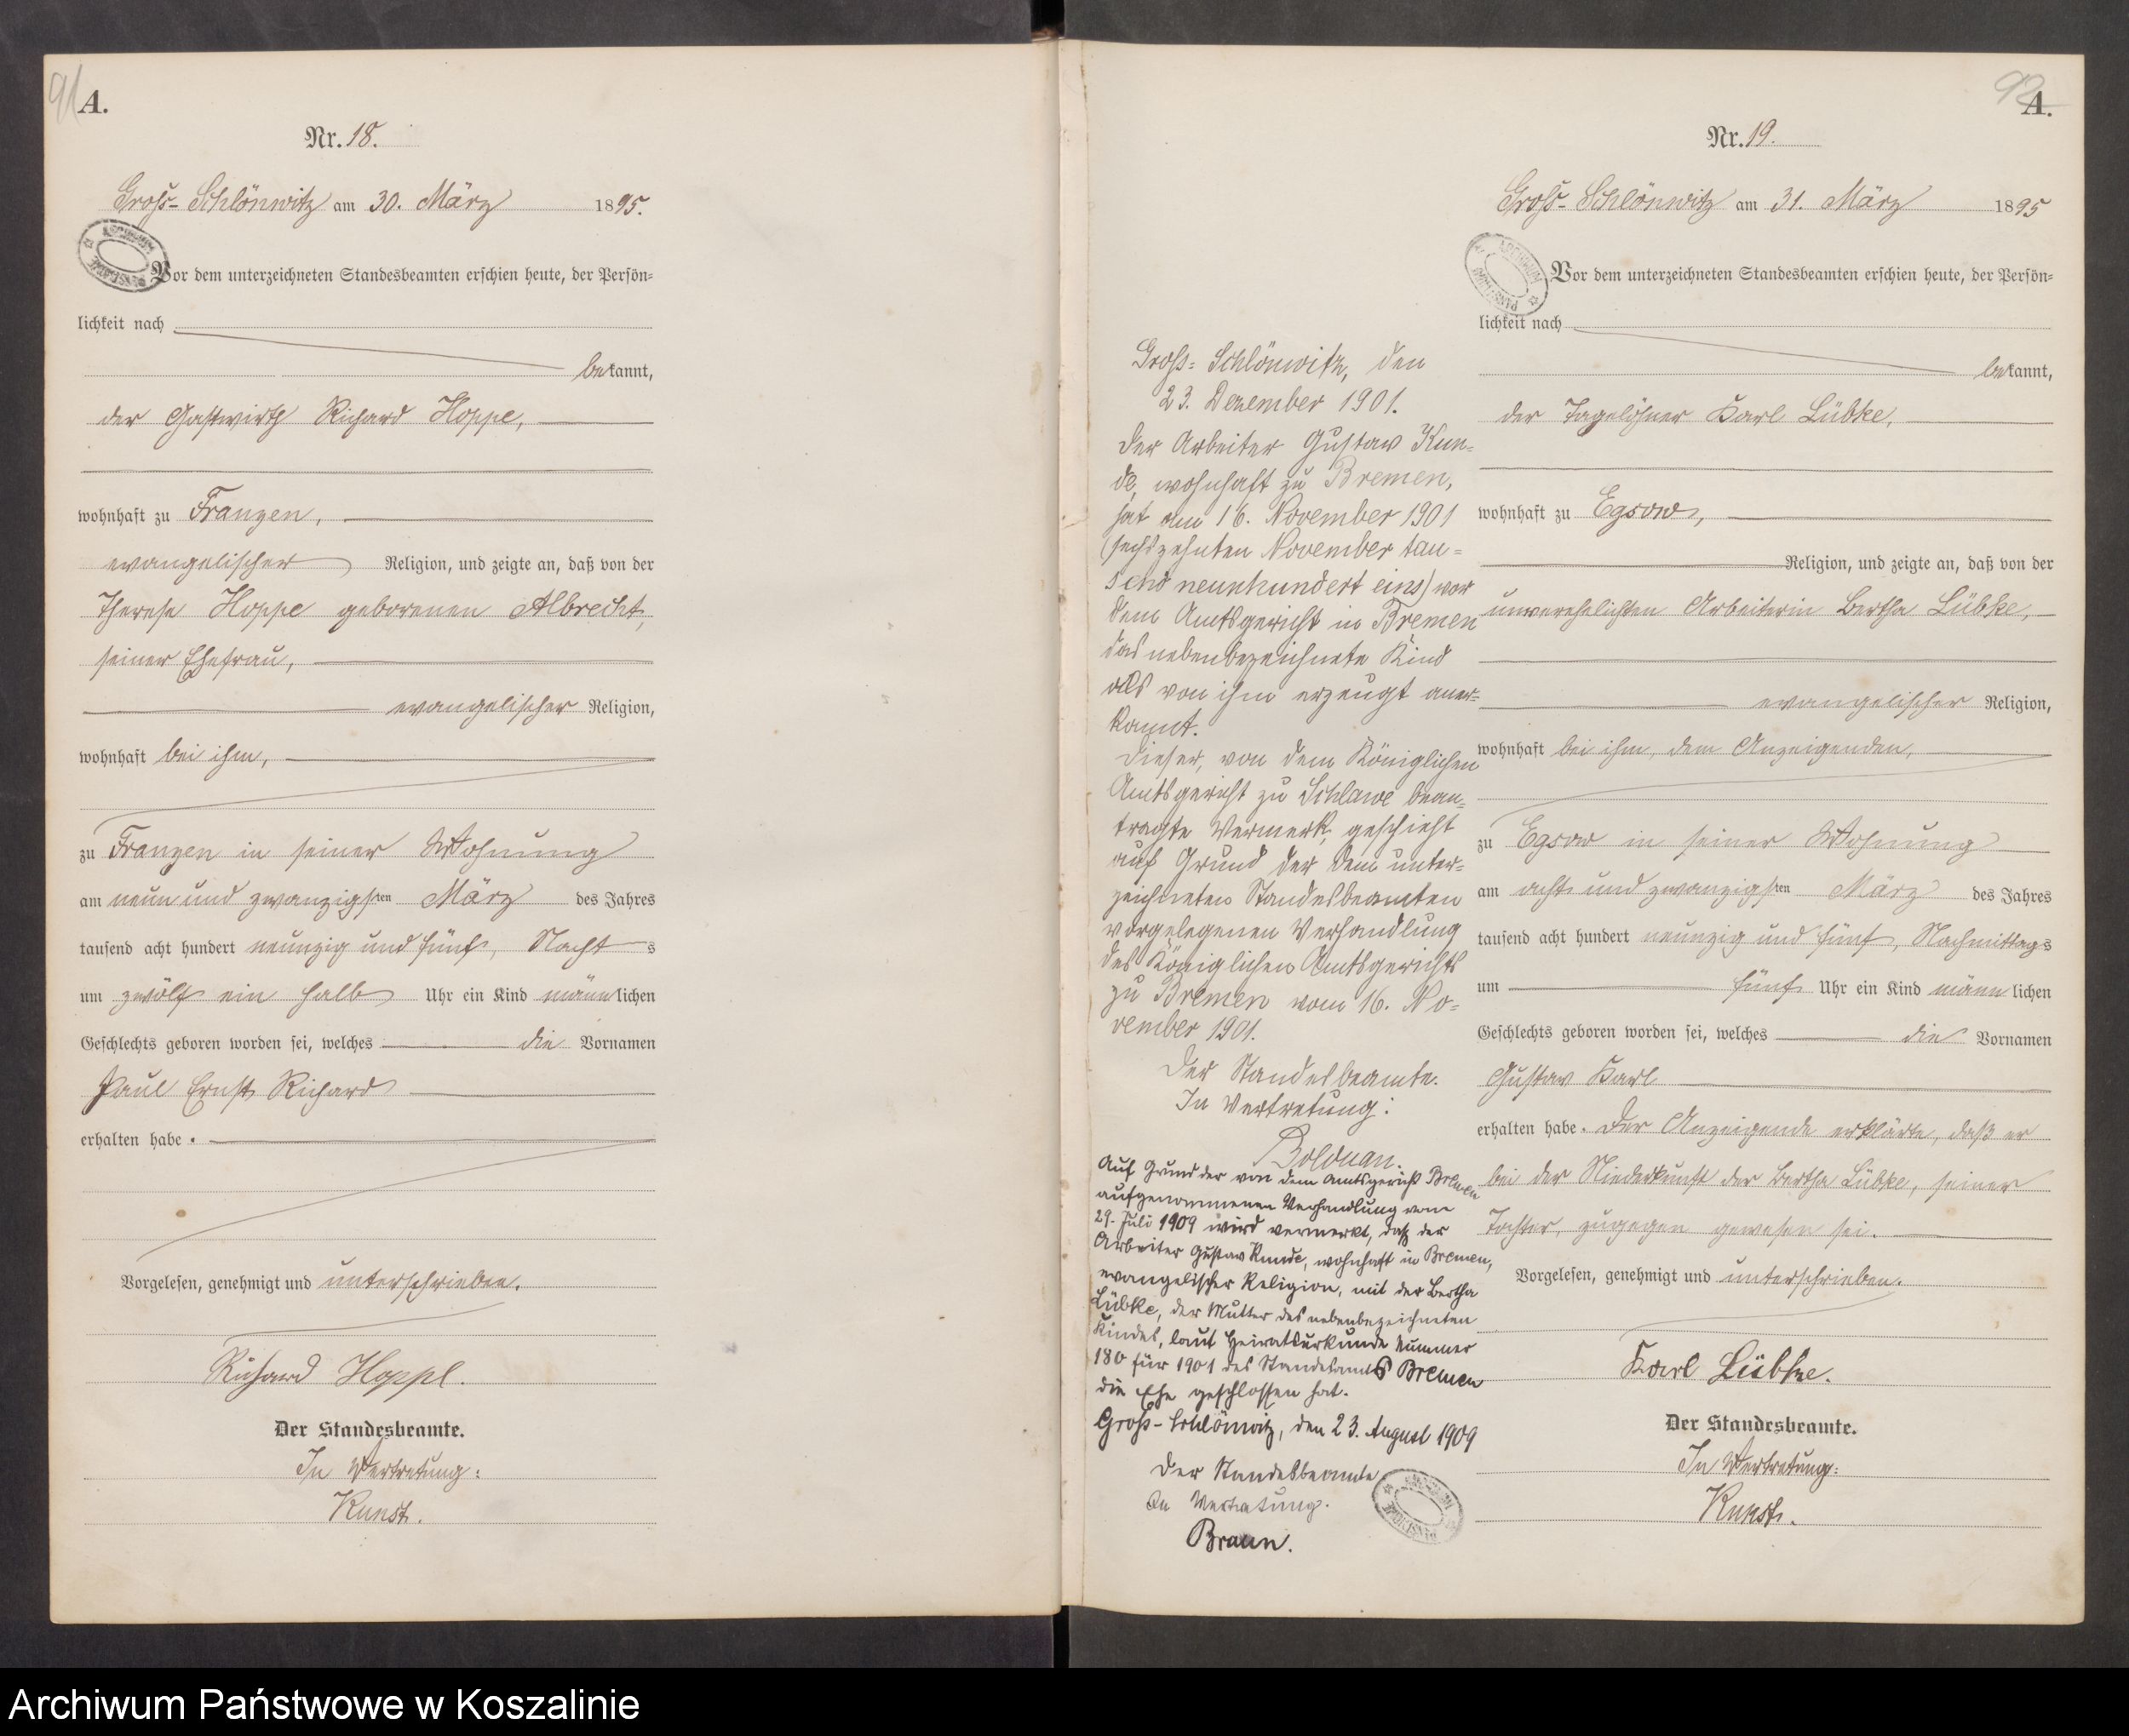 91
A.
Nr. 18.
Groß-Schlönwitz am 30. März 1895.
Vor dem unterzeichneten Standesbeamten erschien heute, der Persön=
lichkeit nach
bekannt,
der Gastwirth Richard Hoppe,
wohnhaft zu Franzen,
evangelischer Religion, und zeigte an, daß von der
Therese Hoppe geborenen Albrecht,
seiner Ehefrau,
evangelischer Religion,
wohnhaft bei ihm,
zu Franzen in seiner Wohnung
am neun und zwanzigsten März des Jahres
tausend acht hundert neunzig und fünf, Nachts
um zwölf ein halb Uhr ein Kind männlichen
Geschlechts geboren worden sei, welches die Vornamen
Paul Ernst Richard
erhalten habe.
Vorgelesen, genehmigt und unterschrieben.
Richard Hoppe.
Der Standesbeamte.
In Vertretung:
Kunst.
92
A.
Nr. 19.
Groß-Schlönwitz am 31. März 1895
Vor dem unterzeichneten Standesbeamten erschien heute, der Persön=
lichkeit nach
bekannt,
der Tagelöhner Karl Lübke,
wohnhaft zu Egsow,
Religion, und zeigte an, daß von der
unverehelichten Arbeiterin Bertha Lübke,
evangelischer Religion,
wohnhaft bei ihm, dem Anzeigenden,
zu Egsow in seiner Wohnung
am acht und zwanzigsten März des Jahres
tausend acht hundert neunzig und fünf, Nachmittags
um fünf Uhr ein Kind männlichen
Geschlechts geboren worden sei, welches die Vornamen
Gustav Karl
erhalten habe. Der Anzeigende erklärte, daß er
bei der Niederkunft der Bertha Lübke, seiner
Tochter, zugegen gewesen sei.
Vorgelesen, genehmigt und unterschrieben.
Karl Lübke.
Der Standesbeamte.
In Vertretung:
Kunst.
Groß=Schlönwitz, den
23. Dezember 1901.
Der Arbeiter Gustav Kun=
de, wohnhaft zu Bremen,
hat am 16. November 1901
(sechszehnten November tau=
send neunhundert eins) vor
dem Amtsgericht in Bremen
das nebenbezeichnete Kind
als von ihm erzeugt aner=
kannt.
Dieser, von dem Königlichen
Amtsgericht zu Schlawe bean=
tragte Vermerk, geschieht
auf Grund der dem unter=
zeichneten Standesbeamten
vorgelegenen Verhandlung
des Königlichen Amtsgerichts
zu Bremen vom 16. No=
vember 1901.
Der Standesbeamte.
In Vertretung:
Bolduan.
Auf Grund der von dem Amtsgericht Bremen
aufgenommenen Verhandlung vom
29. Juli 1909 wird vermerkt, daß der
Arbeiter Gustav Kunde, wohnhaft in Bremen,
evangelischer Religion, mit der Bertha
Lübke, der Mutter des nebenbezeichneten
Kindes, laut Heiratsurkunde Nummer
180 für 1901 des Standesamts Bremen
die Ehe geschlossen hat.
Groß-Schlönwitz, den 23. August 1909
Der Standesbeamte
In Vertretung.
Braun.
Archiwum Państwowe w Koszalinie